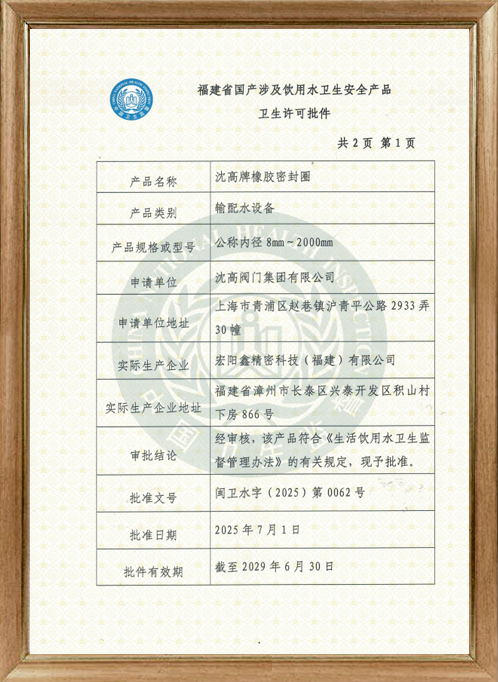 福建省国产涉及饮用水卫生安全产品
卫生许可批件
共 2 页 第 1 页
产品名称 沈高牌橡胶密封圈
产品类别 输配水设备
产品规格或型号 公称内径 8mm～2000mm
申请单位 沈高阀门集团有限公司
申请单位地址 上海市青浦区赵巷镇沪青平公路 2933 弄
30 幢
实际生产企业 宏阳鑫精密科技（福建）有限公司
实际生产企业地址 福建省漳州市长泰区兴泰开发区积山村
下房 866 号
审批结论 经审核，该产品符合《生活饮用水卫生监
督管理办法》的有关规定，现予批准。
批准文号 闽卫水字（2025）第 0062 号
批准日期 2025 年 7 月 1 日
批件有效期 截至 2029 年 6 月 30 日